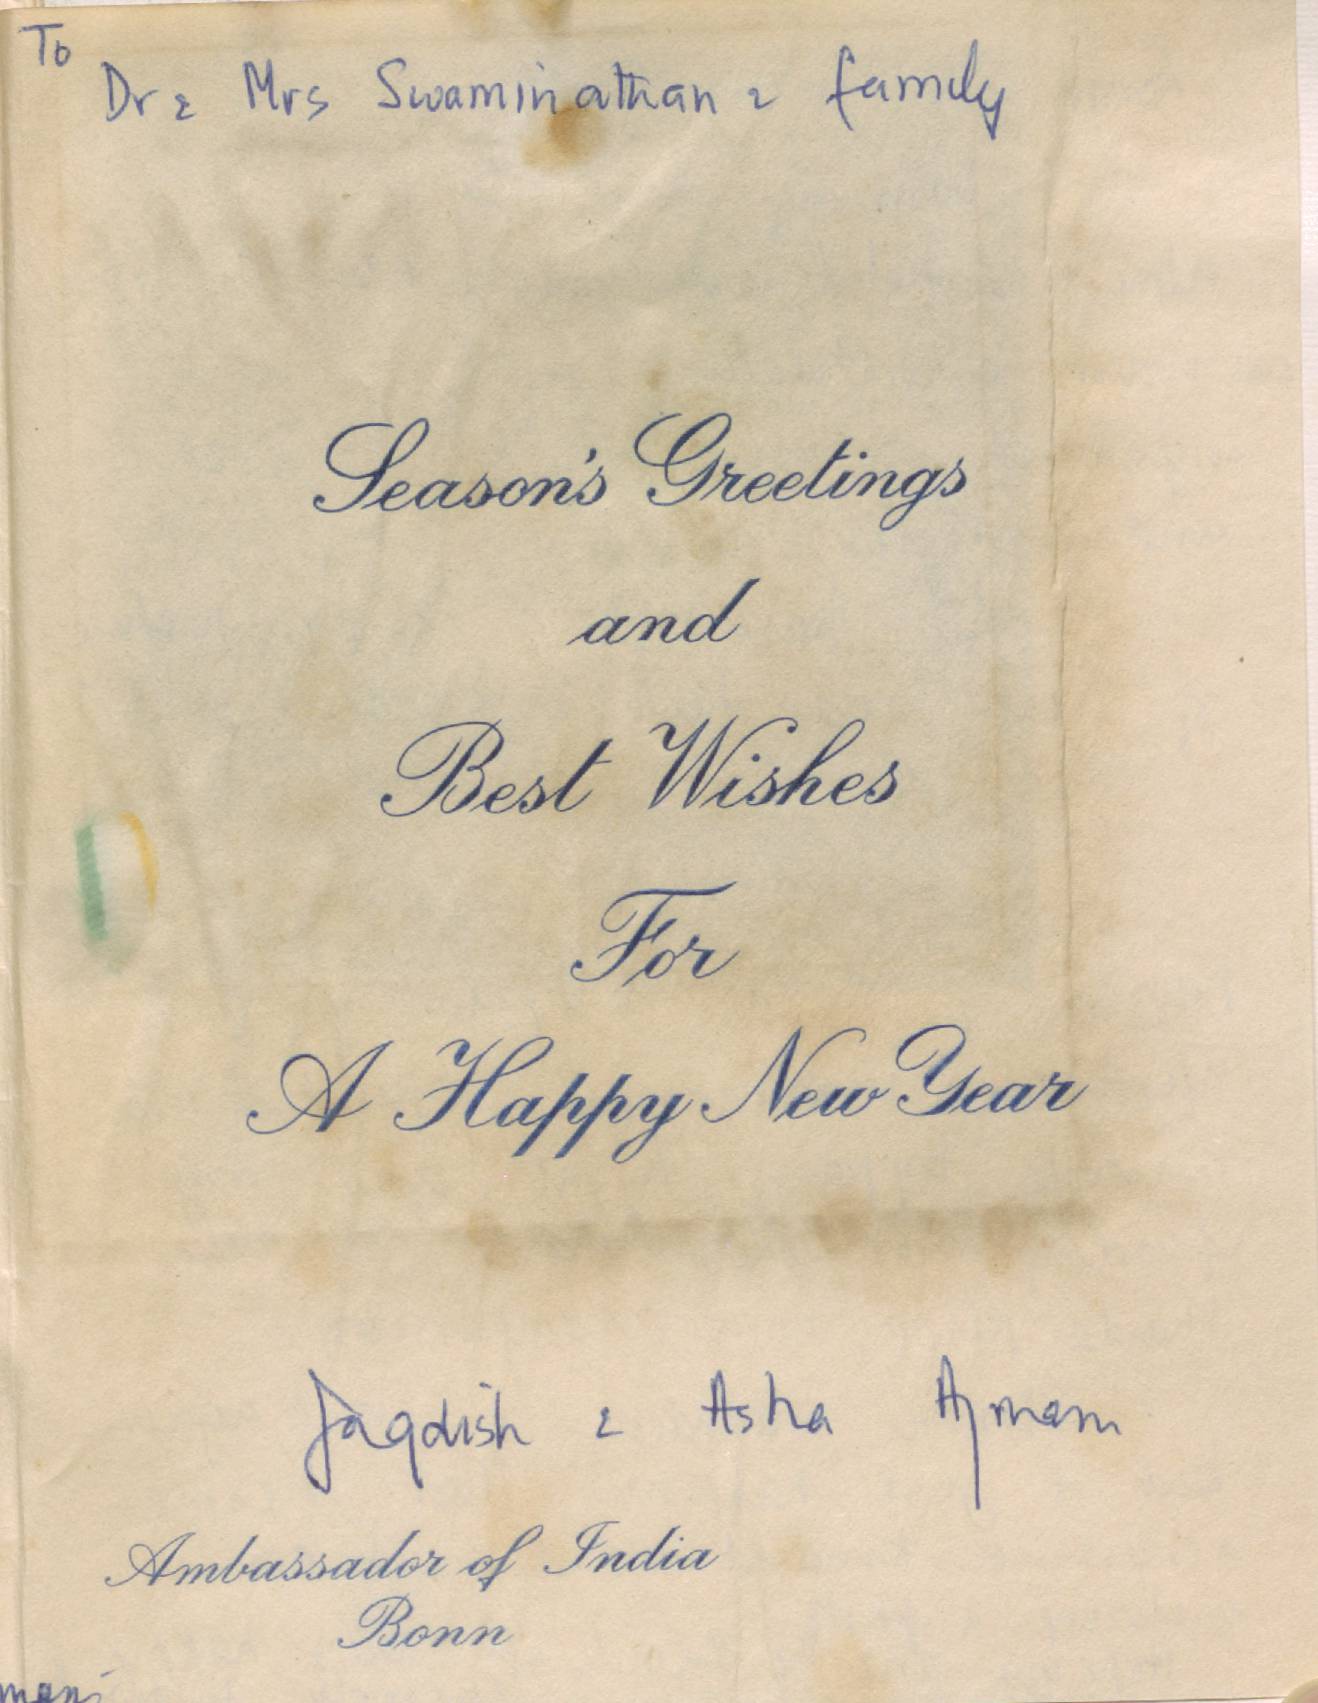 To
Dr & Mrs Swaminathan & family
Season's Greetings
and
Best Wishes
For
A Happy New Year
Jagdish & Asha Ajmani
Ambassador of India
Bonn